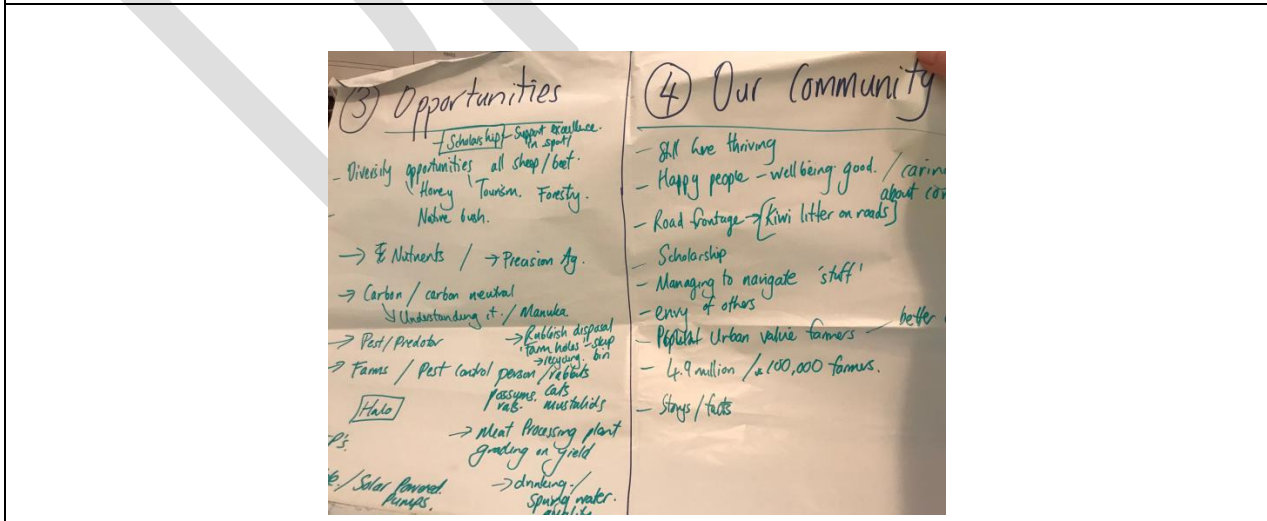 ③ Opportunities
Scholarship - Support excellence
in sport
- Diversity opportunities all sheep/beef.
Honey Tourism. Forestry.
Native bush.
→ Nutrients / → Precision Ag.
→ Carbon / carbon neutral
Understanding it. / Manuka
→ Pest/Predator
→ Rubbish disposal
farm holes - skip
→ recycling bin
→ Farms / Pest control person / rabbits
possums. cats
rats. mustalids
Halo
P's.
→ Meat Processing plant
grading on yield
/ Solar Powered.
Pumps.
→ drinking /
Spring water.
④ Our Community
- Still here thriving
- Happy people - well being good. / caring
about
- Road frontage → [Kiwi litter on roads]
- Scholarship
- Managing to navigate 'stuff'
- envy of others
- Urban value farmers - better
- 4.9 million / 100,000 farmers.
- Storys / facts